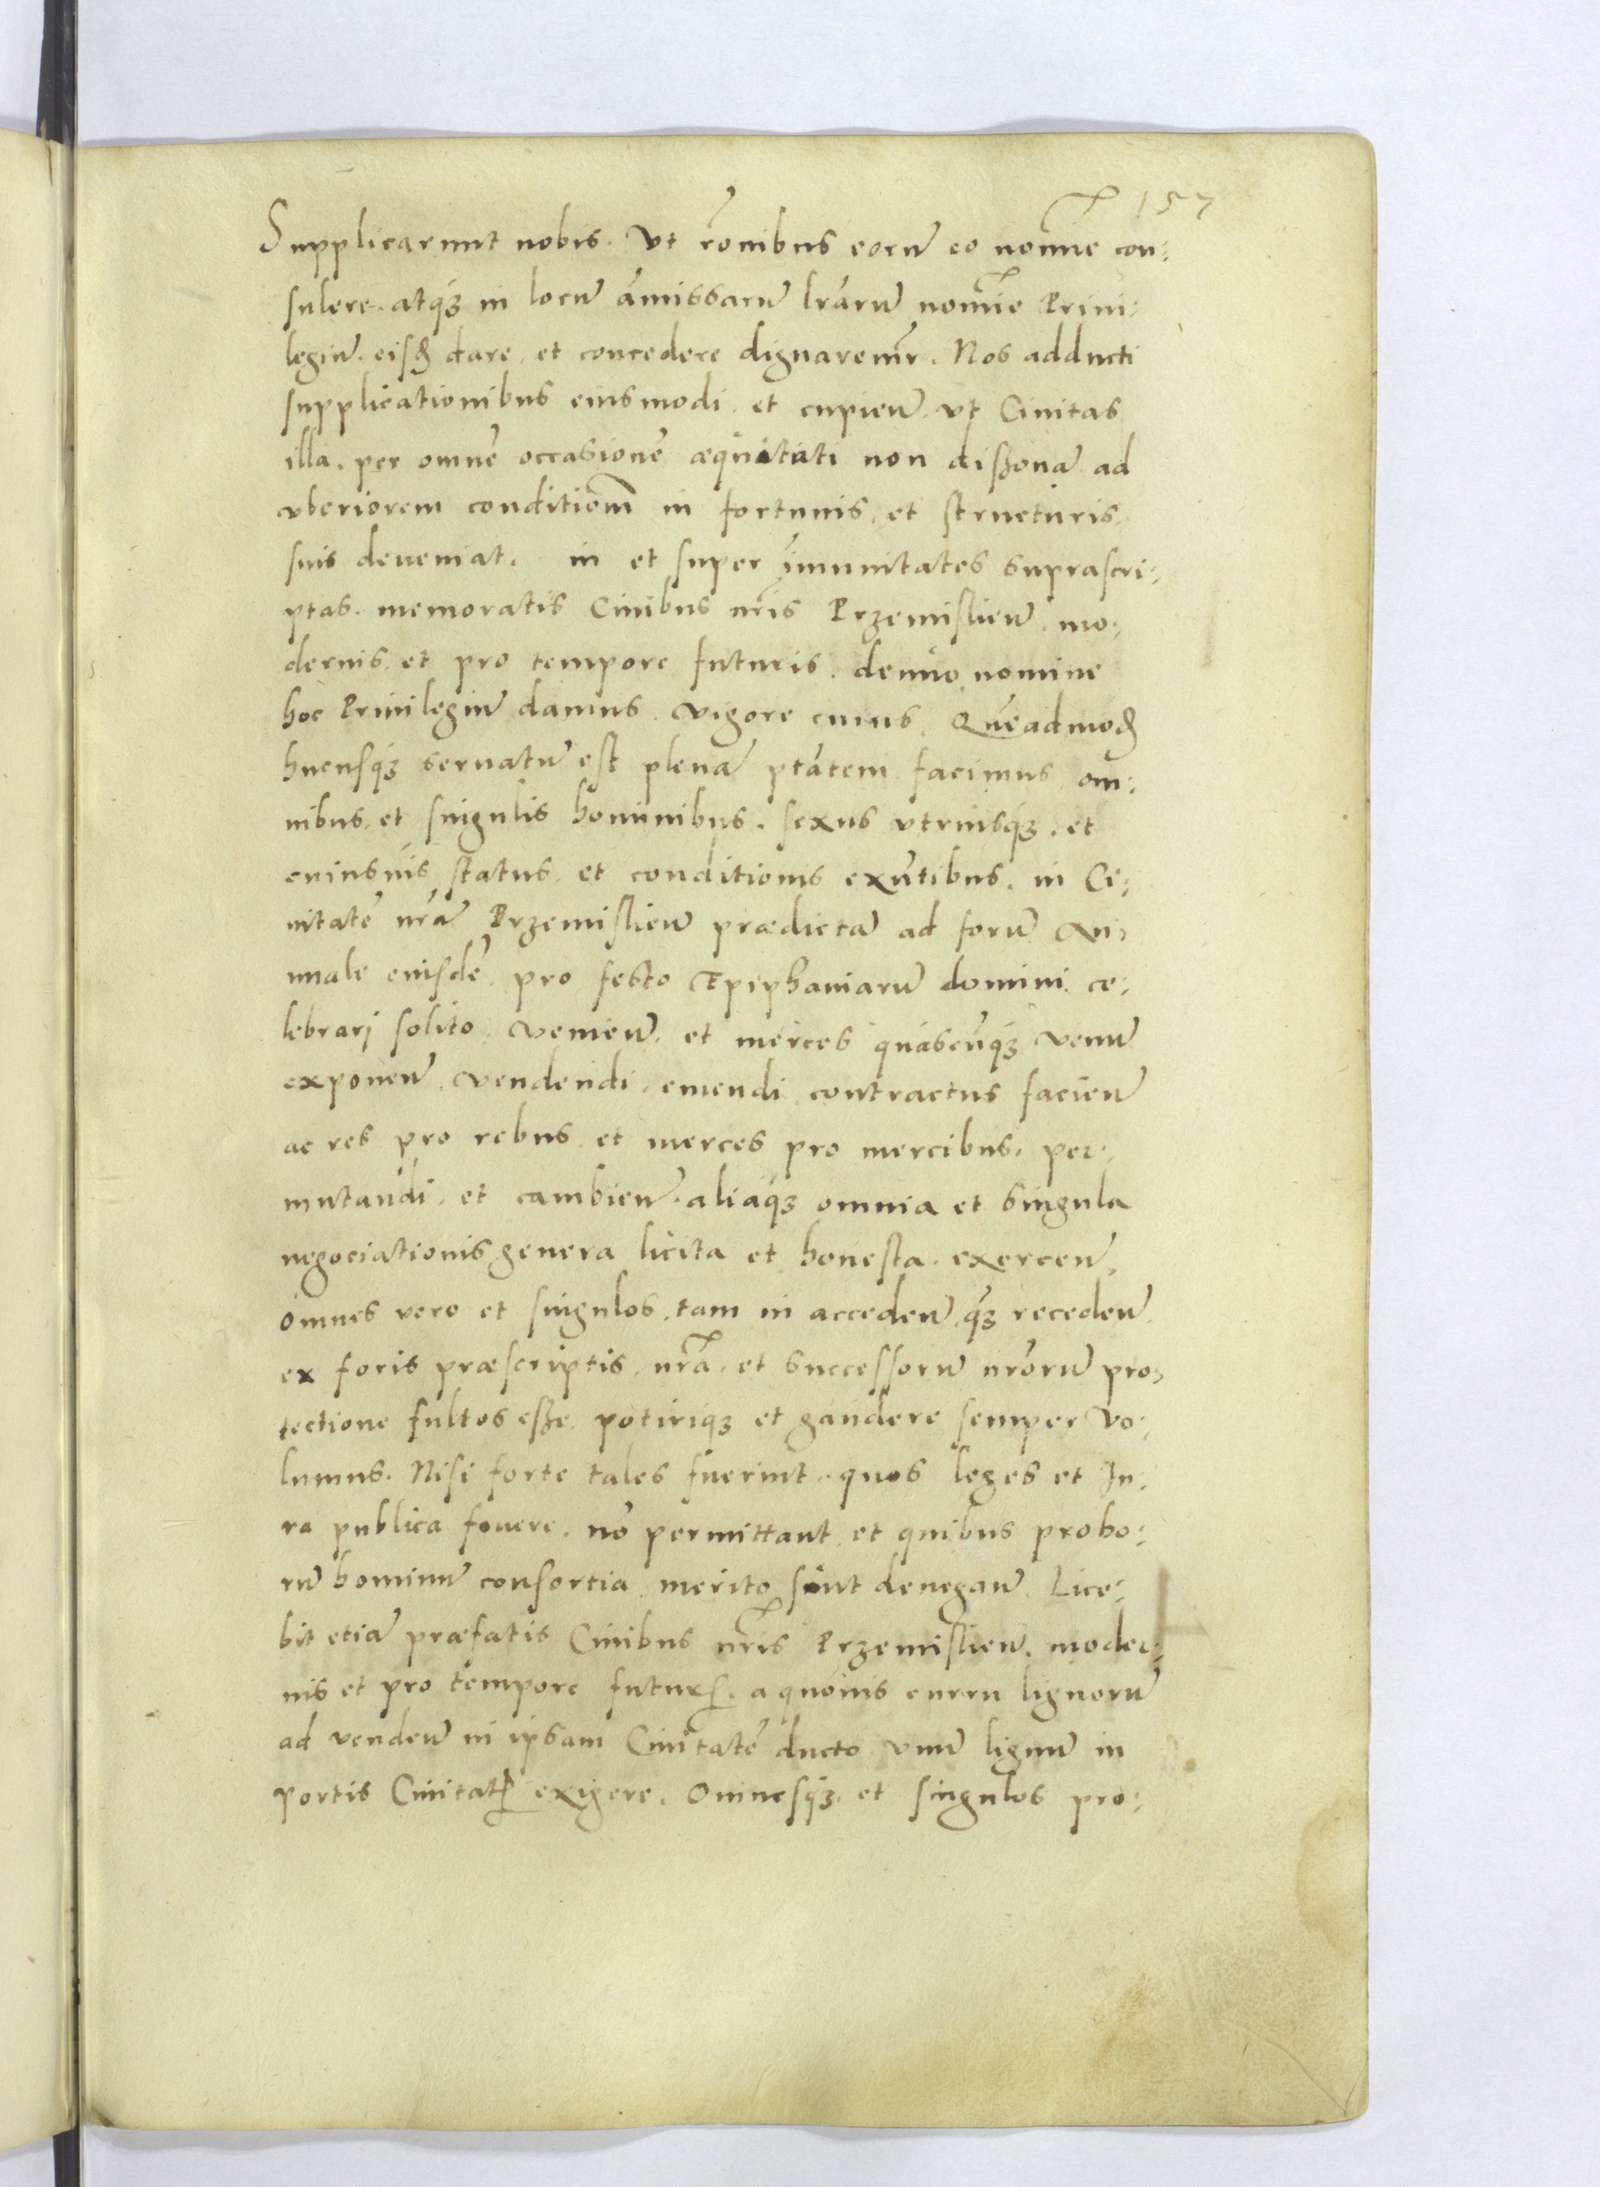 157
Supplicarunt nobis. Vt rōnibus eorū eo nomīe con:
sulere. atq́ꝫ in locū āmissarū lrārū nomīe Priui:
legiū. eisꝺ dare, et concedere dignaremr̄. Nos adducti
supplicationibus eiusmodi. et cupieñ. vt Ciuitas
illa. per omnē occasionē æquitati non dissonā ad
vberiorem conditionē in fortunis, et structuris
suis deueniat. in et super īmunitates suprascri:
ptas. memoratis Ciuibus nr̄is Przemislieñ. mo:
dernis, et pro tempore futuris. denuo nomine
hoc Priuilegiū damus. vigore cuius. Quēadmoꝺ
hucusq́ꝫ seruatū est plenā ptātem facimus om:
nibus, et singulis hominibus. sexus vtriusq́ꝫ. et
cuiusuis status. et conditionis exn̄tibus. in Ci:
uitatē nr̄ā Przemislieñ prædictā ad forū An:
nuale eiusdē. pro festo Epiphaniarū domini ce:
lebrarj solito. venieñ. et merces quascūq́ꝫ venū
exponeñ. vendendi. emendi contractus facieñ
ac res pro rebus et merces pro mercibus. per:
mutandi. et cambieñ. aliaq́ꝫ omnia et singula
negociationis genera licita et honesta. exerceñ.
omnes vero et singulos. tam in accedeñ, q̄ꝫ recedeñ
ex foris præscriptis. nr̄a. et successorū nr̄orū pro:
tectione fultos esse. potiriqꝫ et gaudere semper vo:
lumus. Nisi forte tales fuerint. quos leges et Iu:
ra publica fouere. nō permittant et quibus probo:
rū hominū consortia. merito sint denegañ. Lice:
bit etiā præfatis Ciuibus nr̄is Przemislieñ. moder:
nis et pro tempore futuris. a quouis curru lignorū
ad vendeñ in ipsam Ciuitatē ducto vnū lignū in
portis Ciuitatis exigere. Omnesq́ꝫ. et singulos pro: